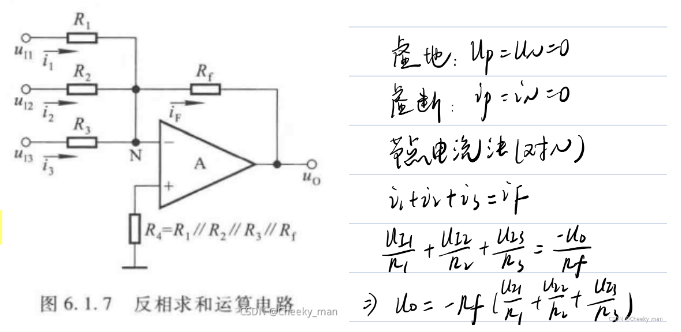 R₁
u_I1 i₁
R₂ R_f
u_I2 i₂ i_F
R₃
u_I3 i₃ N − A + u_O
R₄=R₁//R₂//R₃//R_f
图 6.1.7 反相求和运算电路
CSDN @Cheeky_man
虚地: u_P=u_N=0
虚断: i_P=i_N=0
节点电流法(对N)
i₁+i₂+i₃=i_F
u_I1/R₁ + u_I2/R₂ + u_I3/R₃ = -u_o/R_f
⇒ u_o = -R_f (u_I1/R₁ + u_I2/R₂ + u_I3/R₃)
CSDN @Cheeky_man